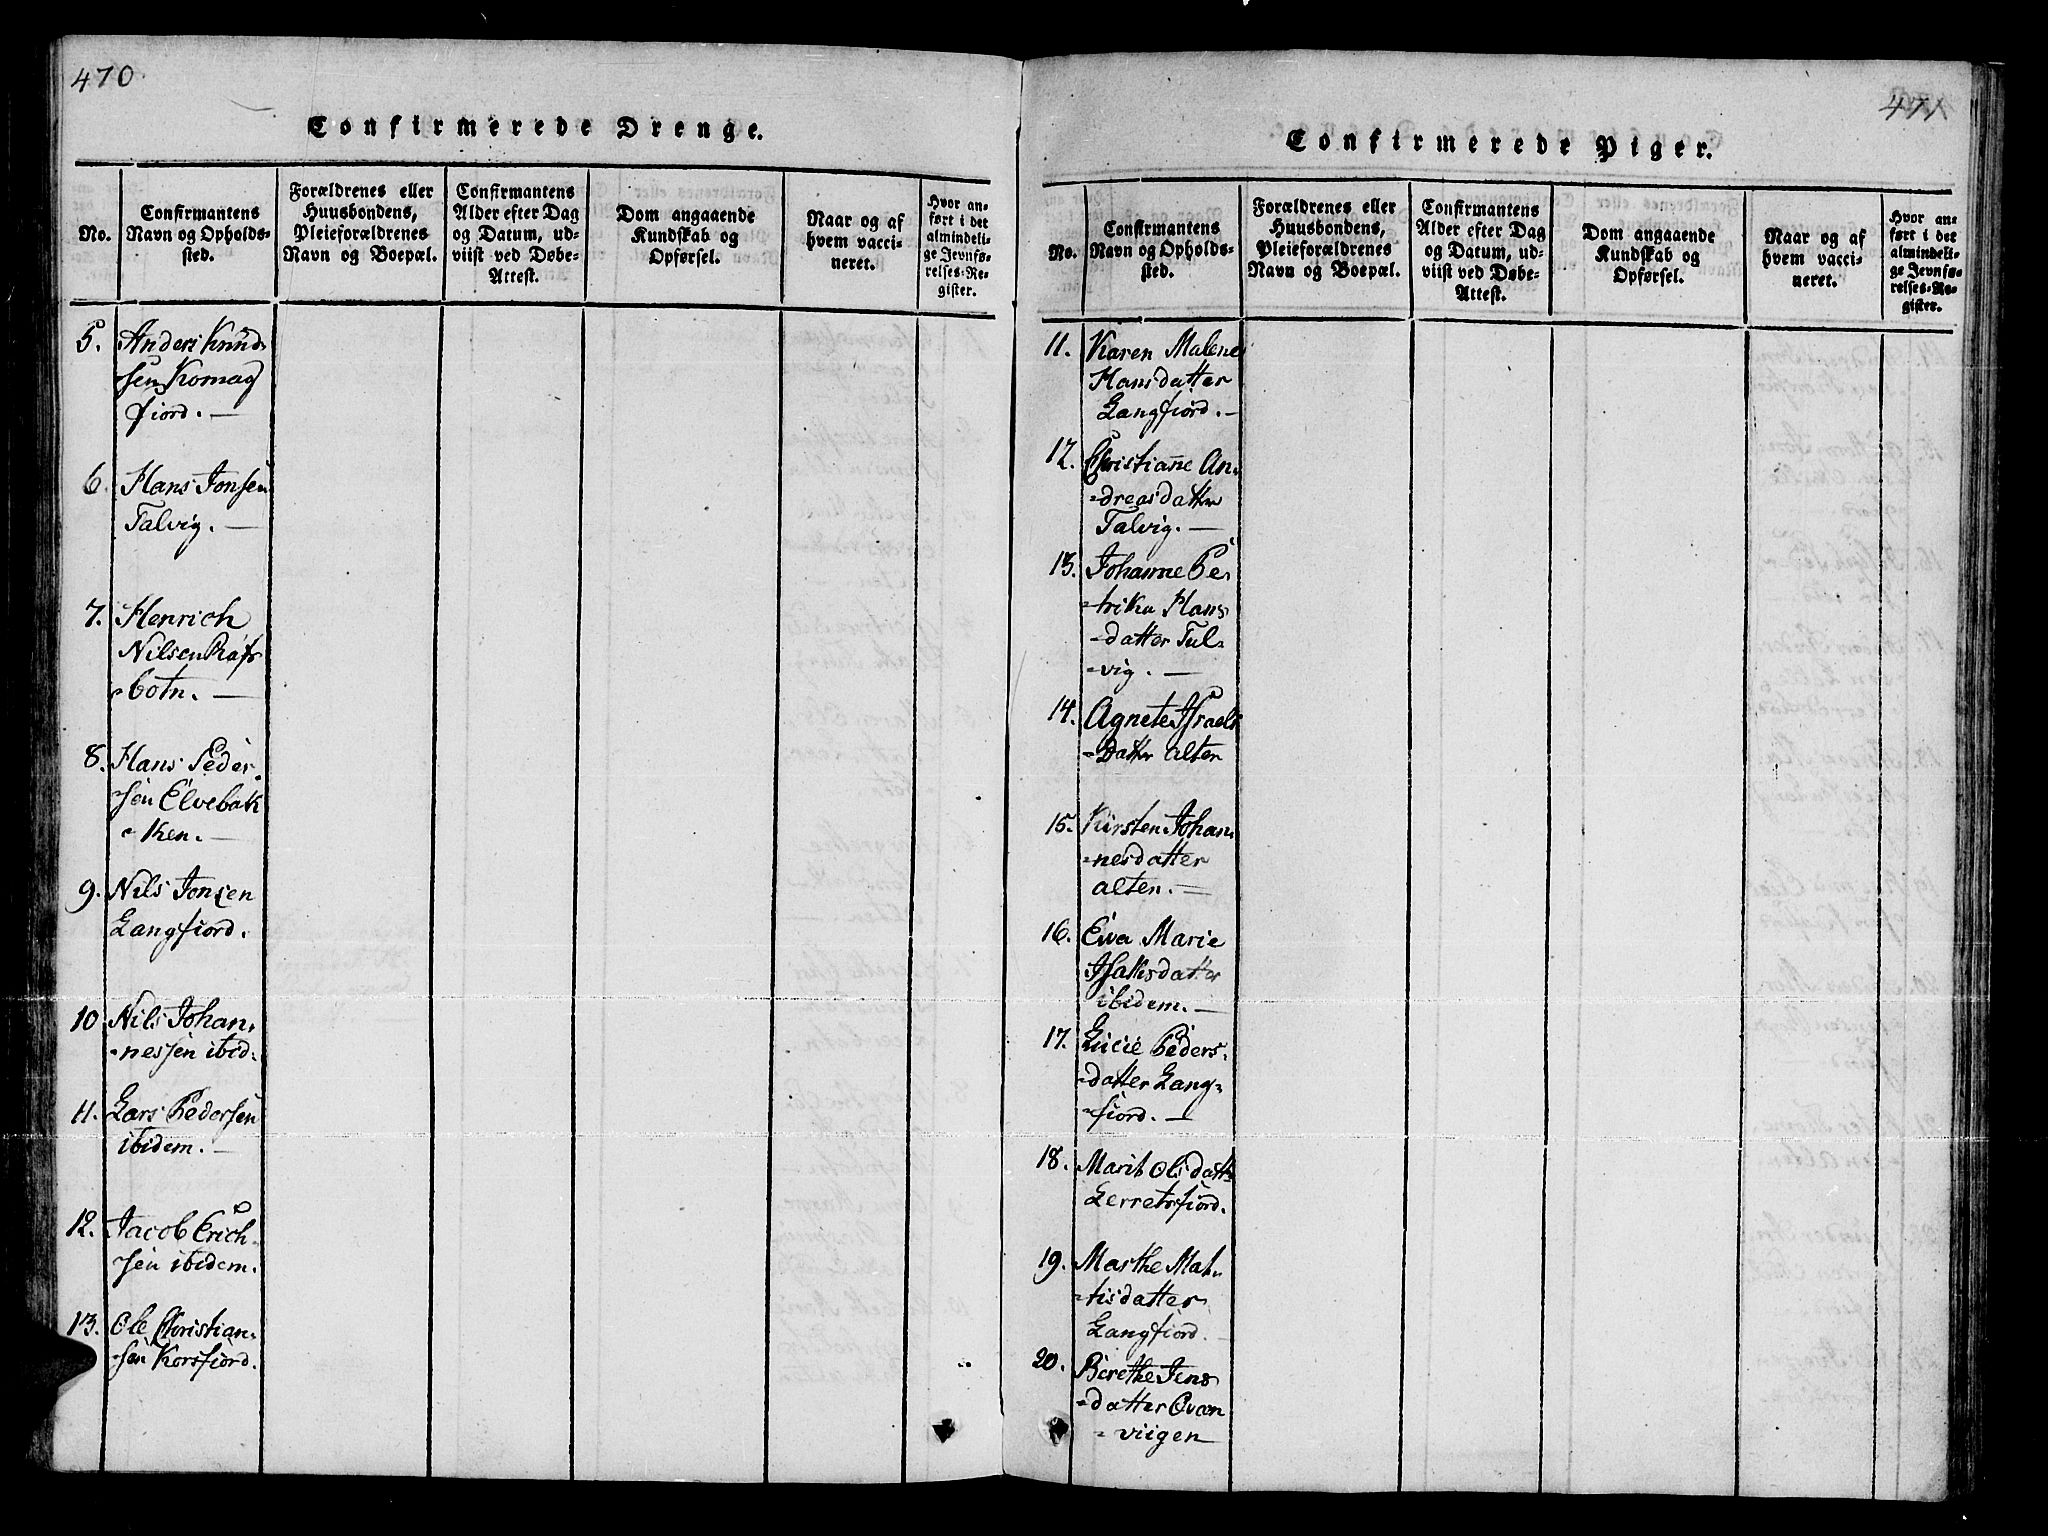 470
Confirmerede Drenge.
No.
Confirmantens
Navn og Opholds-
sted.
Forældrenes eller
Huusbondens,
Pleieforældrenes
Navn og Boepæl.
Confirmantens
Alder efter Dag
og Datum, ud-
viist ved Døbe-
Attest.
Dom angaaende
Kundskab og
Opførsel.
Naar og af
hvem vacci-
neret.
Hvor an-
ført i det
almindeli-
ge Jevnfø-
relses-Re-
gister.
5. Anders Knud-
sen Komag
fiord. —
6. Hans Jonsen
Talvig. —
7. Henrich
Nilsen Rafs
botn. —
8. Hans Peder-
sen Elvebak
ken. —
9. Nils Jonsen
Langfiord.
10 Nils Johan-
nessen ibid.
11. Lars Pedersen
ibidem. —
12. Jacob Erich-
sen ibidem.
13. Ole Christian-
sen Korsfiord.
471
Confirmerede Piger.
No.
Confirmantens
Navn og Opholds-
sted.
Forældrenes eller
Huusbondens,
Pleieforældrenes
Navn og Boepæl.
Confirmantens
Alder efter Dag
og Datum, ud-
viist ved Døbe-
Attest.
Dom angaaende
Kundskab og
Opførsel.
Naar og af
hvem vacci-
neret.
Hvor an-
ført i det
almindeli-
ge Jevnfø-
relses-Re-
gister.
11. Karen Malene
Hansdatter
Langfiord. —
12. Christiane An-
dreasdatter
Talvig. —
13. Johanne Pe-
trika Hans
datter Tal-
vig. —
14. Agnete Israels
Datter Alten
15. Kirsten Johan-
nesdatter
Alten. —
16. Ewa Marie
Isaksdatter
ibidem. —
17. Lucie Peders-
datter Lang-
fiord. —
18. Marit Olsdatt
Lerretsfiord.
19. Marthe Mat-
tisdatter
Langfiord. —
20. Berethe Jens
datter Qvæn
viigen